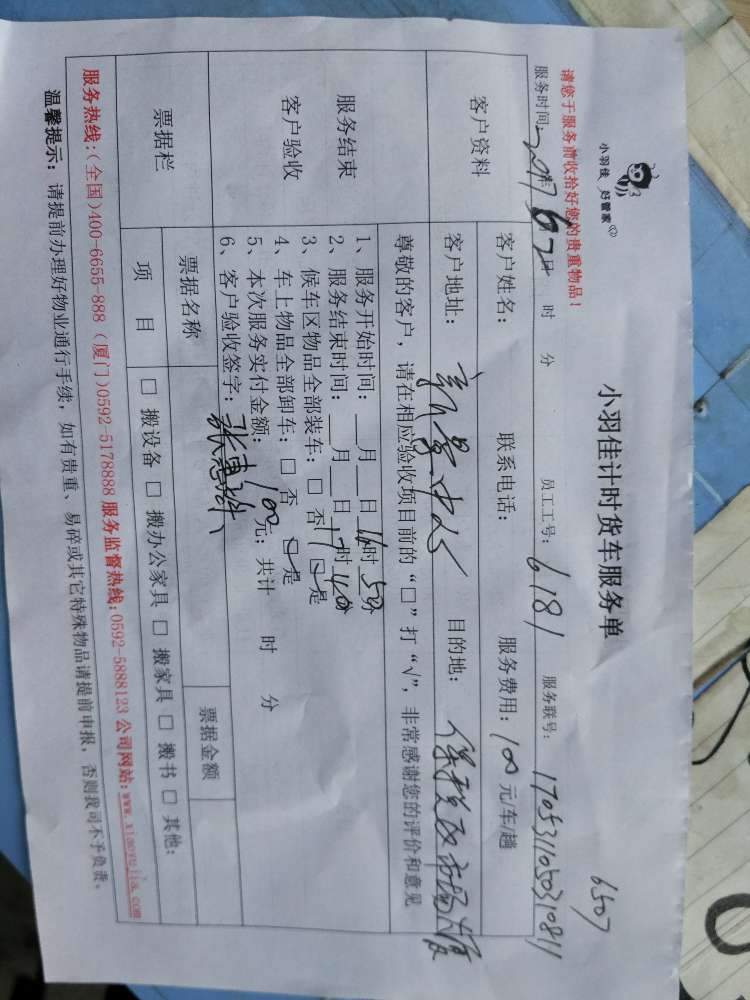 6507
小羽佳 好管家
小羽佳计时货车服务单
请您于服务前收拾好您的贵重物品！
服务时间: 2017 6 2 时 分 员工工号: 6181 服务联号: 1705311050310811
客户资料
客户姓名: 联系电话: 服务费用: 100 元/车/趟
客户地址: 新景中心 目的地: 保税区市场大厦
尊敬的客户，请在相应验收项目前的“□”打“√”，非常感谢您的评价和意见
服务结束
客户验收
1、服务开始时间: __月__日 16时 50分
2、服务结束时间: __月__日 17时 40分
3、候车区物品全部装车: □ 否 ☑ 是
4、车上物品全部卸车: □ 否 ☑ 是
5、本次服务实付金额: 100元; 共计 时 分
6、客户验收签字:
票据栏
票据名称 票据金额
项 目 □ 搬设备 □ 搬办公家具 □ 搬家具 □ 搬书 □ 其他:
服务热线:(全国)400-6655-888 (厦门)0592-5178888 服务监督热线:0592-5888123 公司网站:www.xiaoyujia.com
温馨提示: 请提前办理好物业通行手续，如有贵重、易碎或其它特殊物品请提前申报，否则我司不予负责。